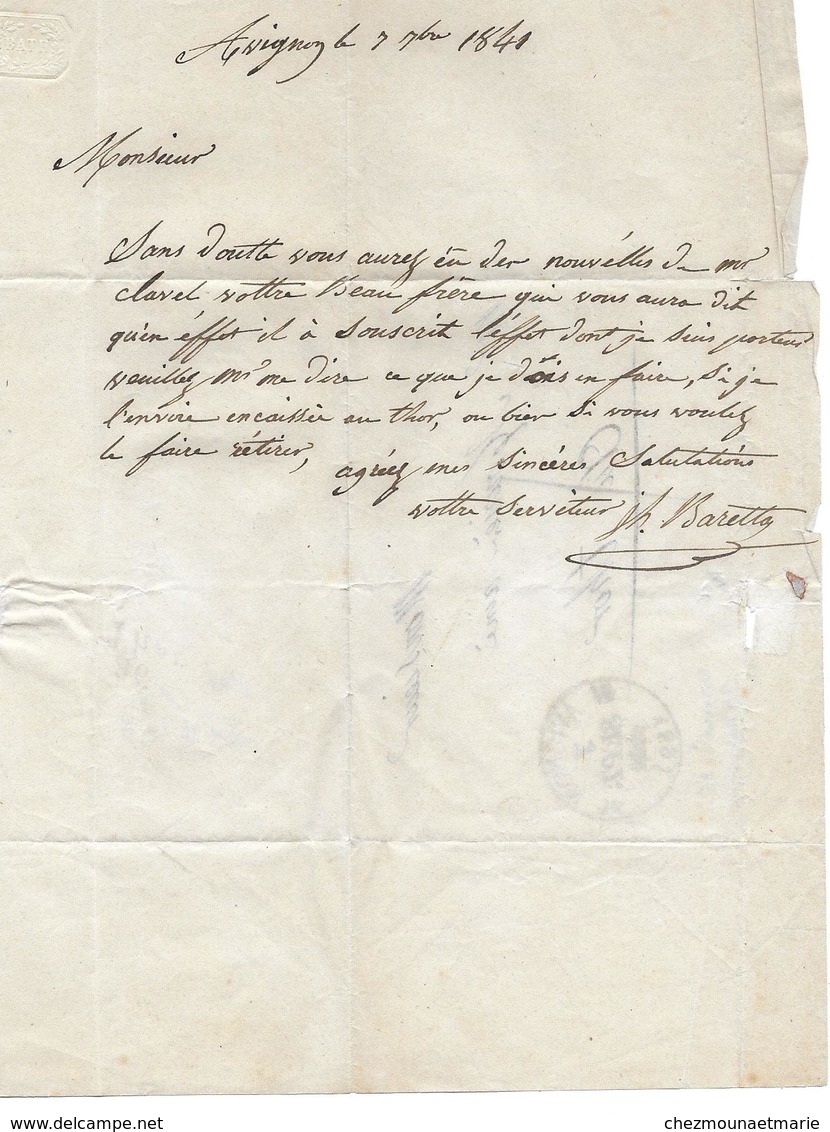 BATH
Avignon le 7 7bre 1841
Monsieur
Sans doutte vous aurez éu des nouvélles de mr
Clavel vottre Beau frére qui vous aura dit
qu'en éffet il à Souscrit l'éffet dont je suis porteur
veuillez mr me dire ce que je dois en faire, Si je
l'envoie encaissée au thor, ou bien Si vous voulez
le faire rétirer,
agréez mes Sincéres Salutations
vottre Servéteur jh. Baretta
www.delcampe.net
chezmounaetmarie